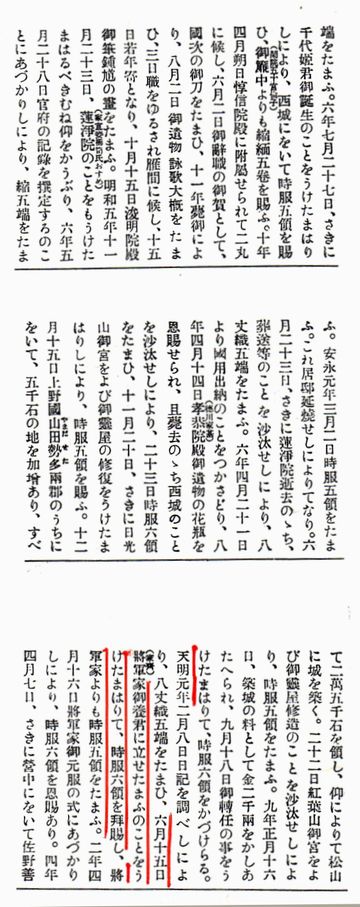 端をたまふ。六年七月二十七日、さきに
千代姫君御誕生のことをうけたまはり
しにより、西城にをいて時服五領を賜
ひ、御簾中よりも縮緬五卷を賜ふ。十年
四月朔日惇信院殿に附屬せられて二丸
に候し、二月二日御辭職の御賀として、
國次の御刀をたまひ、十一年薨御によ
り、八月二日御遺物詠歌大槪をたま
ひ、三日職をゆるされ雁間に候し、十五
日若年寄となり、十月十五日浚明院殿
御筆鍾馗の畫をたまふ。明和五年十一
月二十三日、蓮淨院のことをもうけた
まはるべきむね仰をかうぶり、六年五
月二十八日官府の記錄を撰定するのこ
とにあづかりしにより、縮五端をたま
ふ。安永元年三月二日時服五領をたま
ふ。これ居邸延燒せしによりてなり。六
月二十三日、さきに蓮淨院逝去のゝち、
葬送等のことを沙汰せしにより、八
丈織五端をたまふ。六年四月二十一日
より國用出納のことをつかさどり、八
年四月十四日孝恭院殿御遺物の花瓶を
恩賜せられ、且薨去のゝち西城のこと
を沙汰せしにより、二十三日時服六領
をたまひ、十一月二十日、さきに日光
山御宮をよび御靈屋の修復をうけたま
はりしにより、時服五領を賜ふ。十二
月十五日上野國山田勢多兩郡のうちに
をいて、五千石の地を加增あり、すべ
て二萬五千石を領し、仰によりて松山
に城を築く。二十二日紅葉山御宮をよ
び御靈屋修造のことを沙汰せしによ
り、時服五領をたまふ。九年正月十六
日、築城の料として金二千兩をかしあ
たへられ、九月十八日御轉任の事をう
けたまはりて、時服六領をかづけらる。
天明元年二月八日日記を調べしによ
り、八丈織五端をたまひ、六月十五日
將軍家御養君に立せたまふのことをう
けたまはりて、時服六領を拜賜し、將
軍家よりも時服五領をたまふ。二年四
月十六日將軍家御元服の式にあづかり
しにより、時服六領を恩賜あり。四年
四月七日、さきに營中にをいて佐野善